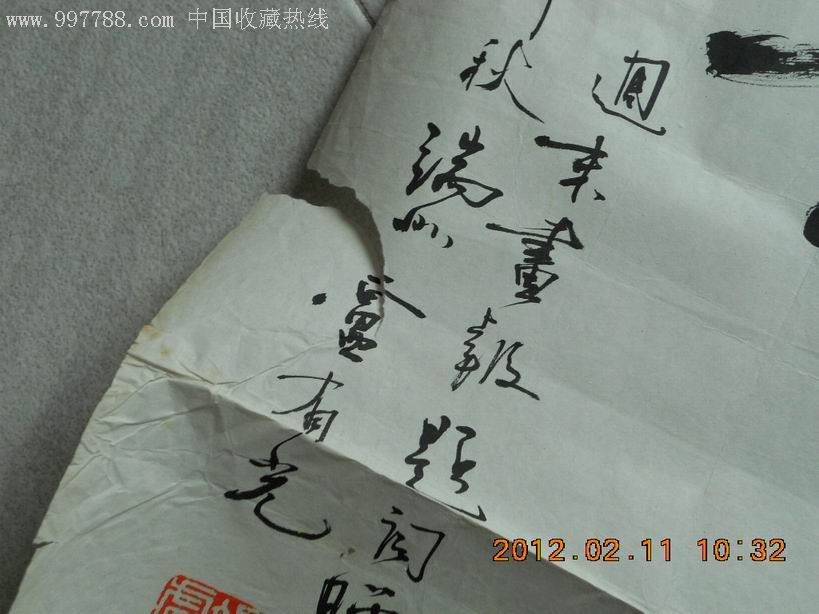 www.997788.com 中国收藏热线
週末畫報題詞
秋端州
盧有光
2012.02.11 10:32